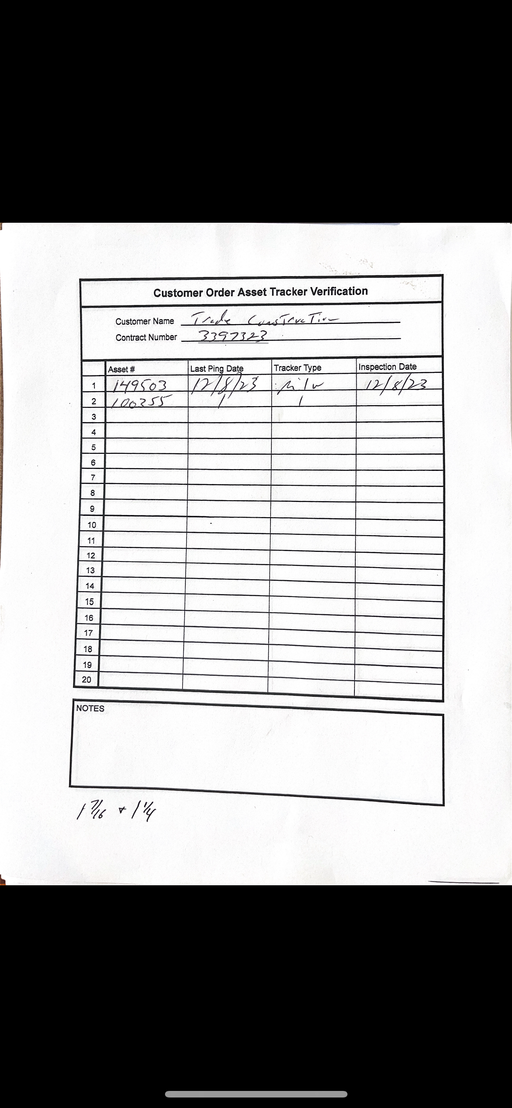 Customer Order Asset Tracker Verification
Customer Name Trade Construction
Contract Number 3397323
Asset # Last Ping Date Tracker Type Inspection Date
1 149503 12/8/23 12/8/23
2 100255
3
4
5
6
7
8
9
10
11
12
13
14
15
16
17
18
19
20
NOTES
1 7/16 + 1 1/4